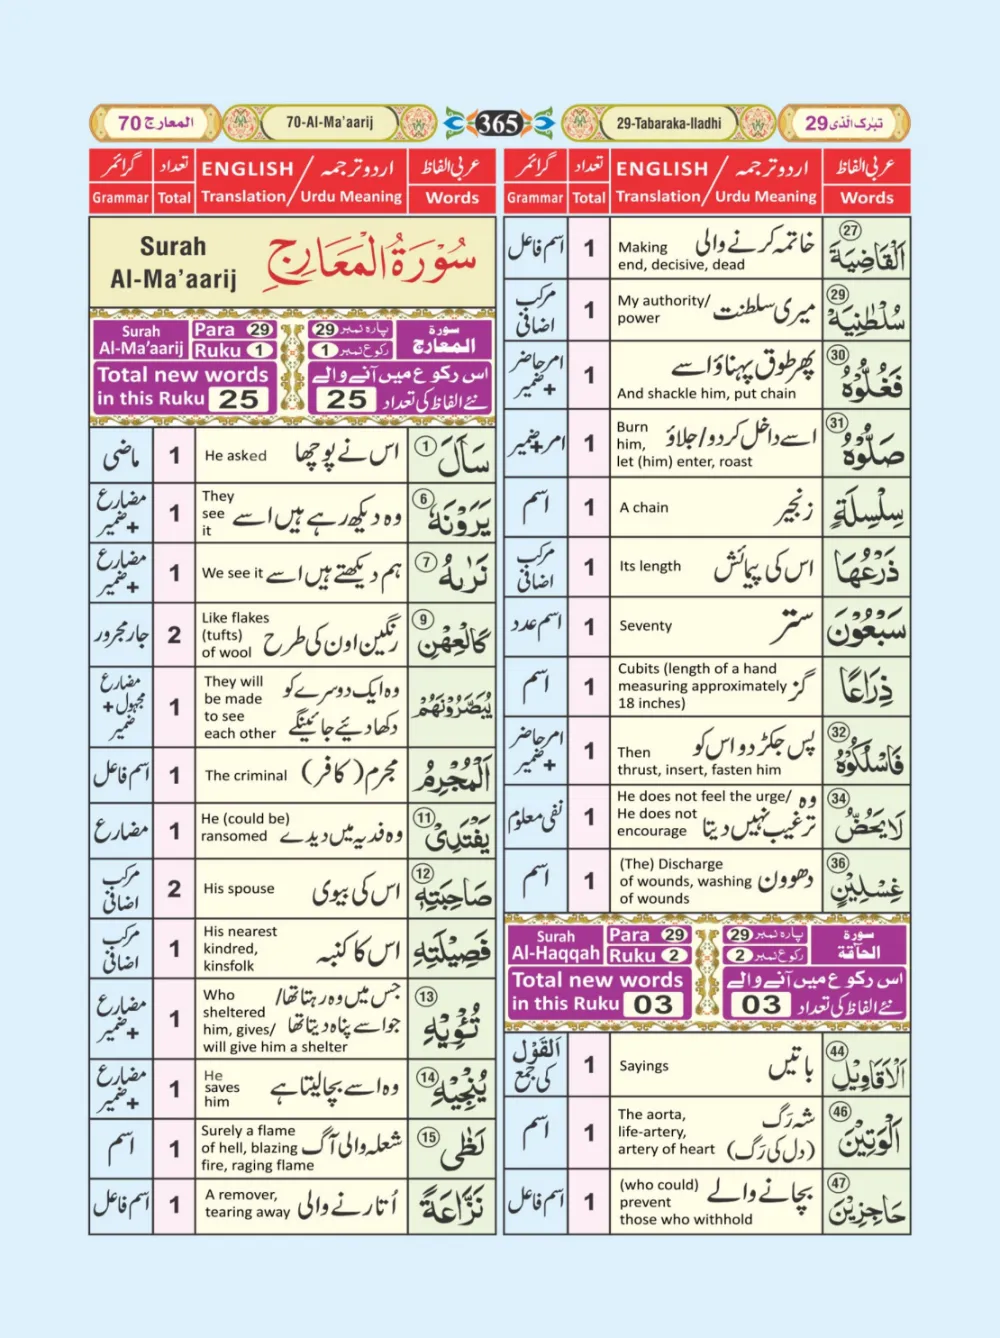 تبٰرک الّذی 29
29-Tabaraka-lladhi
365
70-Al-Ma'aarij
المعارج 70
عربی الفاظ
اردو ترجمہ / ENGLISH
تعداد
گرائمر
Words
Translation / Urdu Meaning
Total
Grammar
27
اَلْقَاضِيَةَ
خاتمہ کرنے والی
Making
end, decisive, dead
1
اسم فاعل
29
سُلْطٰنِيَهْ
میری سلطنت
My authority/
power
1
مرکب
اضافی
30
فَغُلُّوْهُ
پھر طوق پہناؤ اسے
And shackle him, put chain
1
امر حاضر
+ ضمیر
31
صَلُّوْهُ
اسے داخل کر دو/جلاؤ
Burn
him,
let (him) enter, roast
1
امر+ضمیر
سِلْسِلَةٍ
زنجیر
A chain
1
اسم
ذَرْعُهَا
اس کی پیمائش
Its length
1
مرکب
اضافی
سَبْعُوْنَ
ستر
Seventy
1
اسم عدد
ذِرَاعًا
گز
Cubits (length of a hand
measuring approximately
18 inches)
1
اسم
32
فَاسْلُكُوْهُ
پس جکڑ دو اس کو
Then
thrust, insert, fasten him
1
امر حاضر
+ ضمیر
34
لَا يَحُضُّ
وہ
ترغیب نہیں دیتا
He does not feel the urge/
He does not
encourage
1
نفی معلوم
36
غِسْلِيْنٍ
دھوون
(The) Discharge
of wounds, washing
of wounds
1
اسم
سورۃ
الحاقۃ
پارہ نمبر 29
رکوع نمبر 2
Para 29
Ruku 2
Surah
Al-Haqqah
اس رکوع میں آنے والے
نئے الفاظ کی تعداد 03
Total new words
in this Ruku 03
44
الْاَقَاوِيْلِ
باتیں
Sayings
1
اَلْقَوْل
کی جمع
46
الْوَتِيْنَ
شہ رَگ
(دل کی رَگ)
The aorta,
life-artery,
artery of heart
1
اسم
47
حَاجِزِيْنَ
بچانے والے
(who could)
prevent
those who withhold
1
اسم فاعل
عربی الفاظ
اردو ترجمہ / ENGLISH
تعداد
گرائمر
Words
Translation / Urdu Meaning
Total
Grammar
سُوْرَةُ الْمَعَارِجِ
Surah
Al-Ma'aarij
سورۃ
المعارج
پارہ نمبر 29
رکوع نمبر 1
Para 29
Ruku 1
Surah
Al-Ma'aarij
اس رکوع میں آنے والے
نئے الفاظ کی تعداد 25
Total new words
in this Ruku 25
1
سَاَلَ
اس نے پوچھا
He asked
1
ماضی
6
يَرَوْنَهٗ
وہ دیکھ رہے ہیں اسے
They
see
it
1
مضارع
+ ضمیر
7
نَرٰىهُ
ہم دیکھتے ہیں اسے
We see it
1
مضارع
+ ضمیر
9
كَالْعِهْنِ
رنگین اون کی طرح
Like flakes
(tufts)
of wool
2
جار مجرور
يُبَصَّرُوْنَهُمْ
وہ ایک دوسرے کو
دکھا دیئے جائینگے
They will
be made
to see
each other
1
مضارع
مجہول +
ضمیر
الْمُجْرِمُ
مجرم (کافر)
The criminal
1
اسم فاعل
11
يَفْتَدِىْ
وہ فدیہ میں دیدے
He (could be)
ransomed
1
مضارع
12
صَاحِبَتِهٖ
اس کی بیوی
His spouse
2
مرکب
اضافی
فَصِيْلَتِهِ
اس کا کنبہ
His nearest
kindred,
kinsfolk
1
مرکب
اضافی
13
تُـْٔوِيْهِ
جس میں وہ رہتا تھا/
جو اسے پناہ دیتا تھا
Who
sheltered
him, gives/
will give him a shelter
1
مضارع
+ ضمیر
14
يُنْجِيْهِ
وہ اسے بچا لیتا ہے
He
saves
him
1
مضارع
+ ضمیر
15
لَظٰى
شعلہ والی آگ
Surely a flame
of hell, blazing
fire, raging flame
1
اسم
نَزَّاعَةً
اُتارنے والی
A remover,
tearing away
1
اسم فاعل